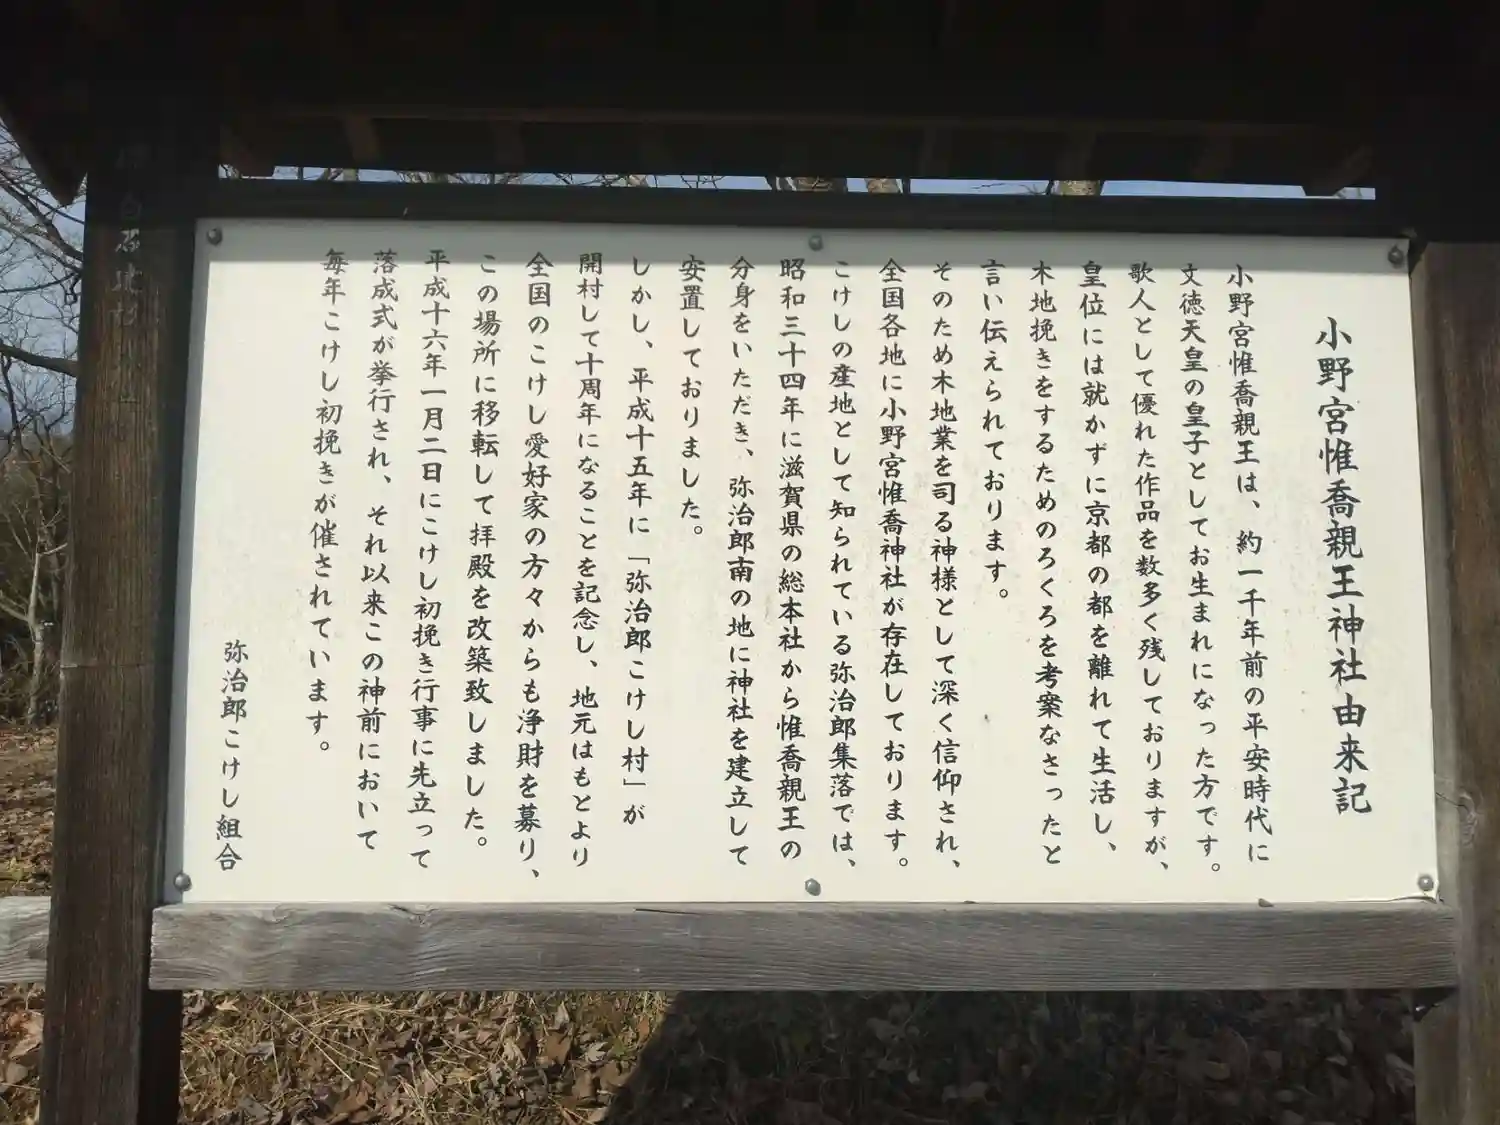 小野宮惟喬親王神社由来記
小野宮惟喬親王は、約一千年前の平安時代に
文徳天皇の皇子としてお生まれになった方です。
歌人として優れた作品を数多く残しておりますが、
皇位には就かずに京都の都を離れて生活し、
木地挽きをするためのろくろを考案なさったと
言い伝えられております。
そのため木地業を司る神様として深く信仰され、
全国各地に小野宮惟喬神社が存在しております。
こけしの産地として知られている弥治郎集落では、
昭和三十四年に滋賀県の総本社から惟喬親王の
分身をいただき、弥治郎南の地に神社を建立して
安置しておりました。
しかし、平成十五年に「弥治郎こけし村」が
開村して十周年になることを記念し、地元はもとより
全国のこけし愛好家の方々からも浄財を募り、
この場所に移転して拝殿を改築致しました。
平成十六年一月二日にこけし初挽き行事に先立って
落成式が挙行され、それ以来この神前において
毎年こけし初挽きが催されています。
弥治郎こけし組合